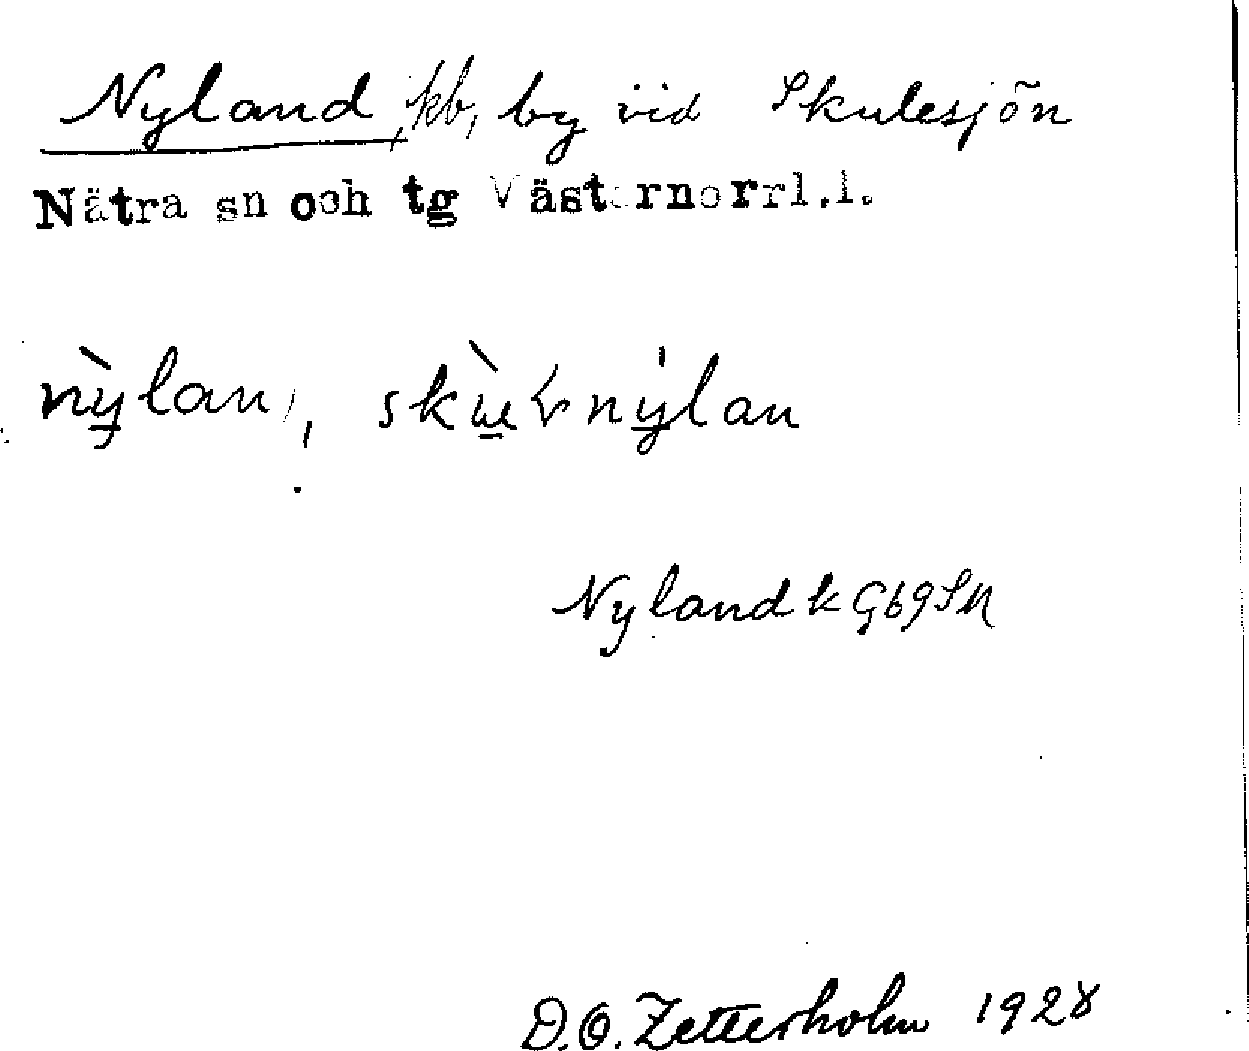 Nyland, kb, by vid Skulesjön
Nätra sn och tg Västernorrl.l.
nỳlan,
Nyland k G69SM
D.O. Zetterholm 1928